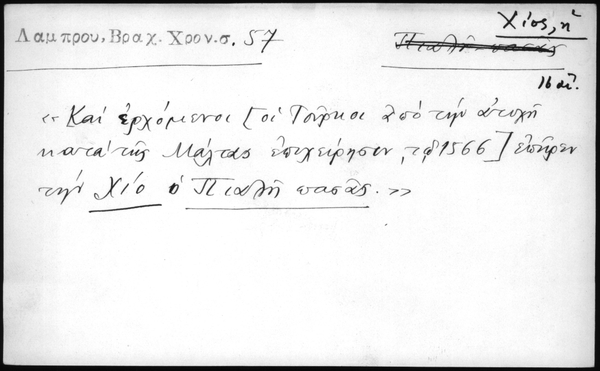 Λαμπρου, Βραχ. Χρον. σ. 57
Χίος, η
Πιαλῆ πασᾶς
16 αἰ.
«Καί ἐρχόμενοι [οἱ Τοῦρκοι ἀπό τήν ἀτυχῆ
κατά τῆς Μάλτας ἐπιχείρησιν, τῷ 1566] ἐπῆρεν
τήν Χίο ὁ Πιαλῆ πασᾶς.»